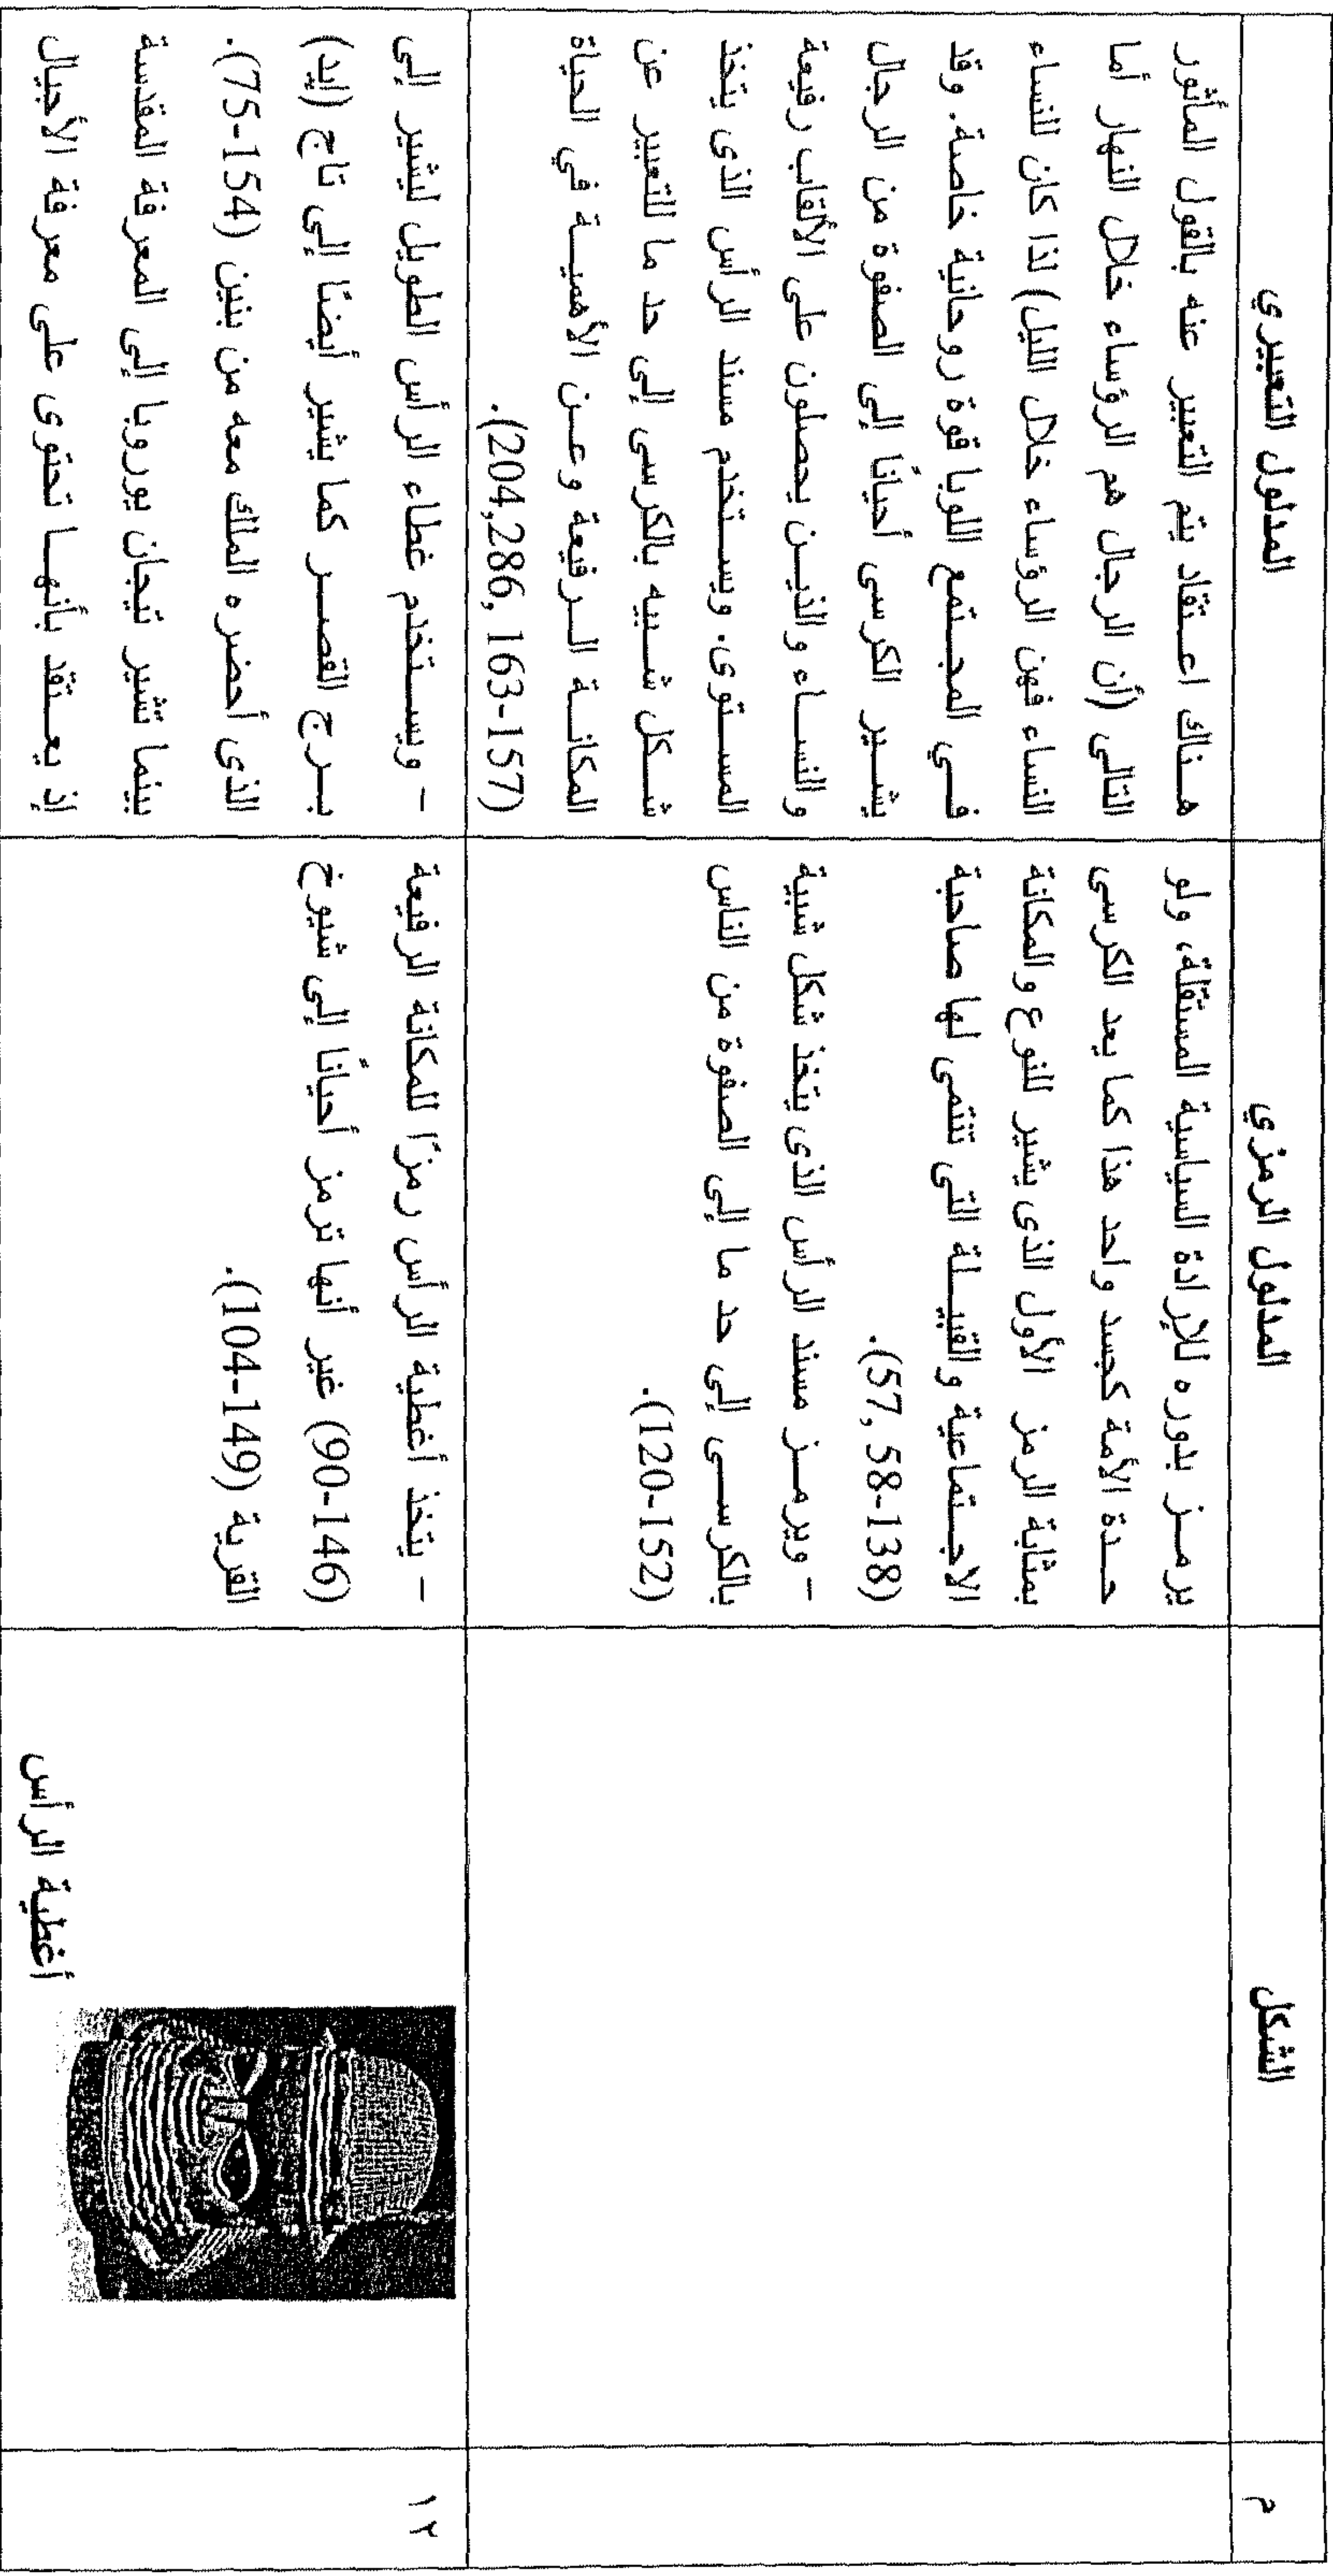 م
الشكل
المدلول الرمزي
المدلول التعبيري
يرمز بدوره للإرادة السياسية المستقلة، ولو
حدة الأمة كجسد واحد هذا كما يعد الكرسى
بمثابة الرمز الأول الذى يشير للنوع والمكانة
الاجتماعية والقبيلة التى تنتمى لها صاحبة
(57, 58-138).
- ويرمز مسند الرأس الذى يتخذ شكل شبية
بالكرسى إلى حد ما إلى الصفوة من الناس
(120-152).
هناك اعتقاد يتم التعبير عنه بالقول المأثور
التالى (أن الرجال هم الرؤساء خلال النهار أما
النساء فهن الرؤساء خلال الليل) لذا كان للنساء
في المجتمع اللوبا قوة روحانية خاصة. وقد
يشير الكرسى أحيانًا إلى الصفوة من الرجال
والنساء والذين يحصلون على الألقاب رفيعة
المستوى. ويستخدم مسند الرأس الذى يتخذ
شكل شبيه بالكرسى إلى حد ما للتعبير عن
المكانة الرفيعة وعن الأهمية في الحياة
(204,286, 163-157).
١٢
أغطية الرأس
- يتخذ أغطية الرأس رمزًا للمكانة الرفيعة
(90-146) غير أنها ترمز أحيانًا إلى شيوخ
القرية (104-149).
- ويستخدم غطاء الرأس الطويل ليشير إلى
برج القصر كما يشير أيضًا إلى تاج (ايد)
الذى أحضره الملك معه من بنين (75-154).
بينما تشير تيجان يوروبا إلى المعرفة المقدسة
إذ يعتقد بأنها تحتوى على معرفة الأجيال